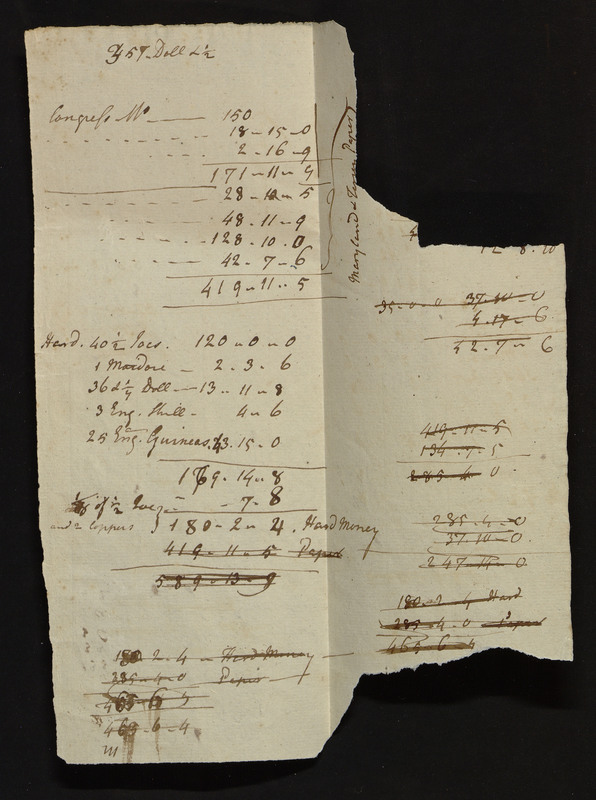 457 Doll 2/2
Congress Mo 150
18-15-0
2-16-9
171-11-9
28-10-5
48-11-9
128.10.0
42-7-6
419-11-5
Maryland & Paper
Hard. 40 1/2 Joes. 120-0-0
1 Moidore - 2-3-6
36 & 1/4 Doll - 13-11-8
3 Eng. Shill - 4-6
25 Eng. Guineas. 43.15-0
179-14-8
1/2 Joe - -7-8
and 2 Coppers } 180-2-4. Hard Money
419-11-5 Paper
589-13-9
180 2-4 - Hard Money
285-4-0 Paper
465-6-4
465-6-4
12-8-10
35-0-0 37-10-0
4-17-6
42-7-6
419-11-5
134-7-5
285-4-0
285-4-0
37-10-0
247-14-0
180-2-4 Hard
285-4-0 Paper
465 6 4